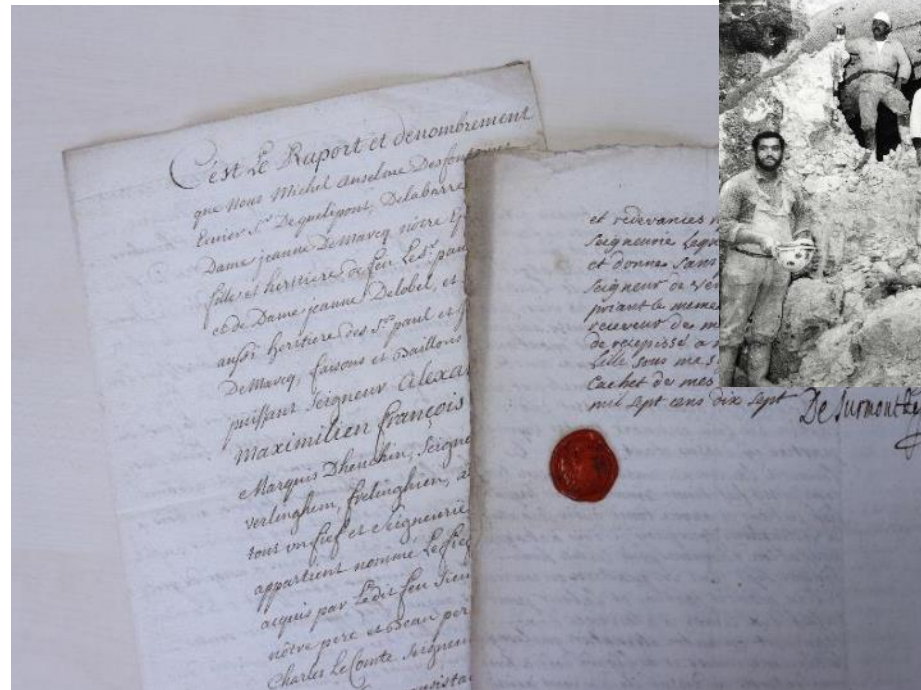 C'est Le Raport et denombrement
que Nous Michel Anselme Desfontaines
Ecuier Sr. Dequelipont, Delabarre
Dame jeanne DeMarcq notre
fille et heritiere de feu Le Sr. paul
et de Dame jeanne Delobel, et
aussi heritiere des Srs. paul et
DeMarcq, faisons et Baillons
puissant Seigneur Alexa
Maximilien François
Marquis Dhenchin, Seigne
verlinghem, frelinghien, a
tout un fief et Seigneurie
appartient nommé Le fie
acquis par Ledit feu Sieu
nôtre pere et Beau per
Charles Le Comte Seigneu
et redevances
Seigneurie laqu
et donnes sans
Seigneur de ver
priant le meme
receveur des m
de recepissé a
Lille sous ma s
Cachet de mes
mil sept cens dix sept
DeSurmont